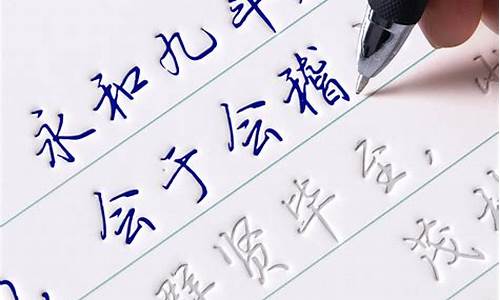 永和九年
会于会稽
群贤毕至,
茂林